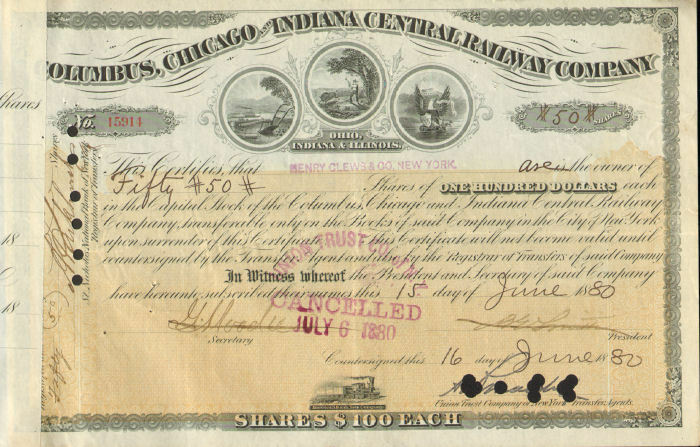 COLUMBUS, CHICAGO AND INDIANA CENTRAL RAILWAY COMPANY
Shares
No. 15914
OHIO,
INDIANA & ILLINOIS.
#50# SHARES
This Certifies, that HENRY CLEWS & CO., NEW YORK. are the owner of
Fifty #50# Shares of ONE HUNDRED DOLLARS each
in the Capital Stock of the Columbus, Chicago and Indiana Central Railway
Company, transferable only on the Books of said Company in the City of New York
upon surrender of this Certificate. This Certificate will not become valid until
countersigned by the Transfer Agent and also by the Registrar of Transfers of said Company
In Witness whereof the President and Secretary of said Company
have hereunto subscribed their names this 15 day of June 1880
UNION TRUST CO.
CANCELLED
JULY 6 1880
Secretary
President
Countersigned this 16 day of June 1880
Union Trust Company of New York Transfer Agents.
SHARES $100 EACH
18
18
Registrar of Transfers